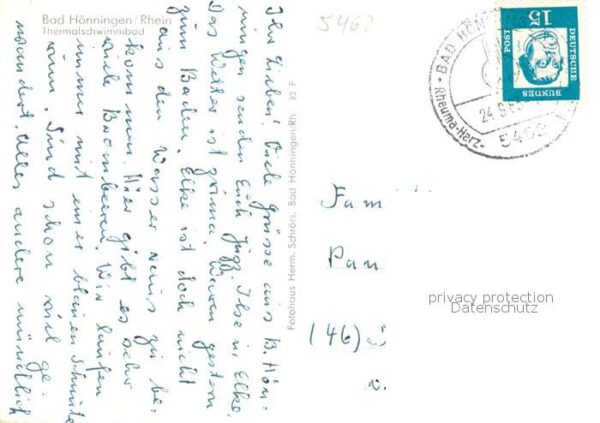 Bad Hönningen/Rhein
Thermalschwimmbad
5462
Ihr Lieben! Viele Grüsse aus B. Hön-
ningen senden Euch Jupp, Ilse u. Elke.
Das Wetter ist prima. Waren gestern
zum Baden. Elke ist doch nicht
aus dem Wasser raus zu be-
kommen. Hier gibt es sehr
viele Brombeeren. Wir laufen
immer mit einer blauen Schnute
rum. Sind schon viel ge-
wandert. Alles andere mündlich
Fotohaus Herm. Schrörs, Bad Hönningen/Rh. 32 F
BAD HÖNNINGEN
Rheuma-Herz-
5462
24.9.6
15
DEUTSCHE
BUNDES
POST
Fam
Pan
(46)
privacy protection
Datenschutz